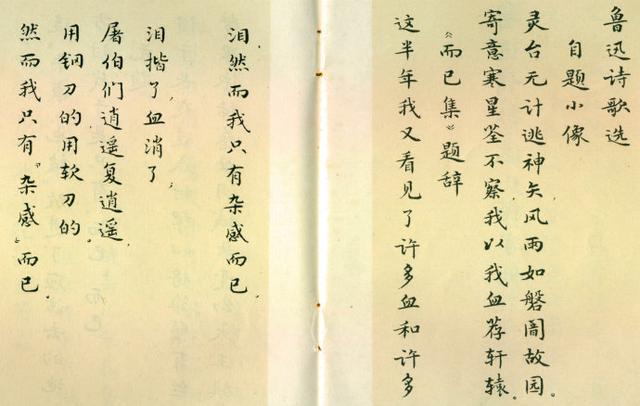 鲁迅诗歌选
自题小像
灵台无计逃神矢风雨如磐闇故园。
寄意寒星荃不察我以我血荐轩辕。
《而已集》题辞
这半年我又看见了许多血和许多
泪然而我只有杂感而已.
泪揩了,血消了,
屠伯们逍遥复逍遥,
用钢刀的用软刀的。
然而我只有“杂感”而已.